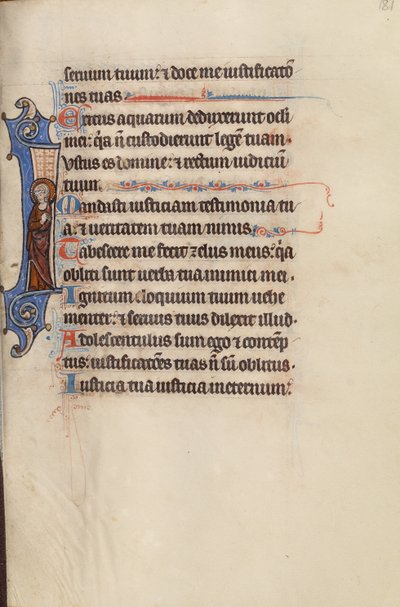 181
seruum tuum: & doce me iustificatio
nes tuas
Exitus aquarum deduxerunt ocli
mei: qia n̄ custodierunt legē tuam.
Iustus es domine: & rectum iudiciū
tuum.
Mandasti iusticiam testimonia tu
a: & ueritatem tuam nimis.
Tabescere me fecit zelus meus: qia
obliti sunt uerba tua inimici mei.
Ignitum eloquium tuum uehe
menter: & seruus tuus dilexit illud.
Adolescentulus sum ego & contēp
tus: iustificatōes tuas n̄ sū oblitus.
Iusticia tua iusticia in eternum: